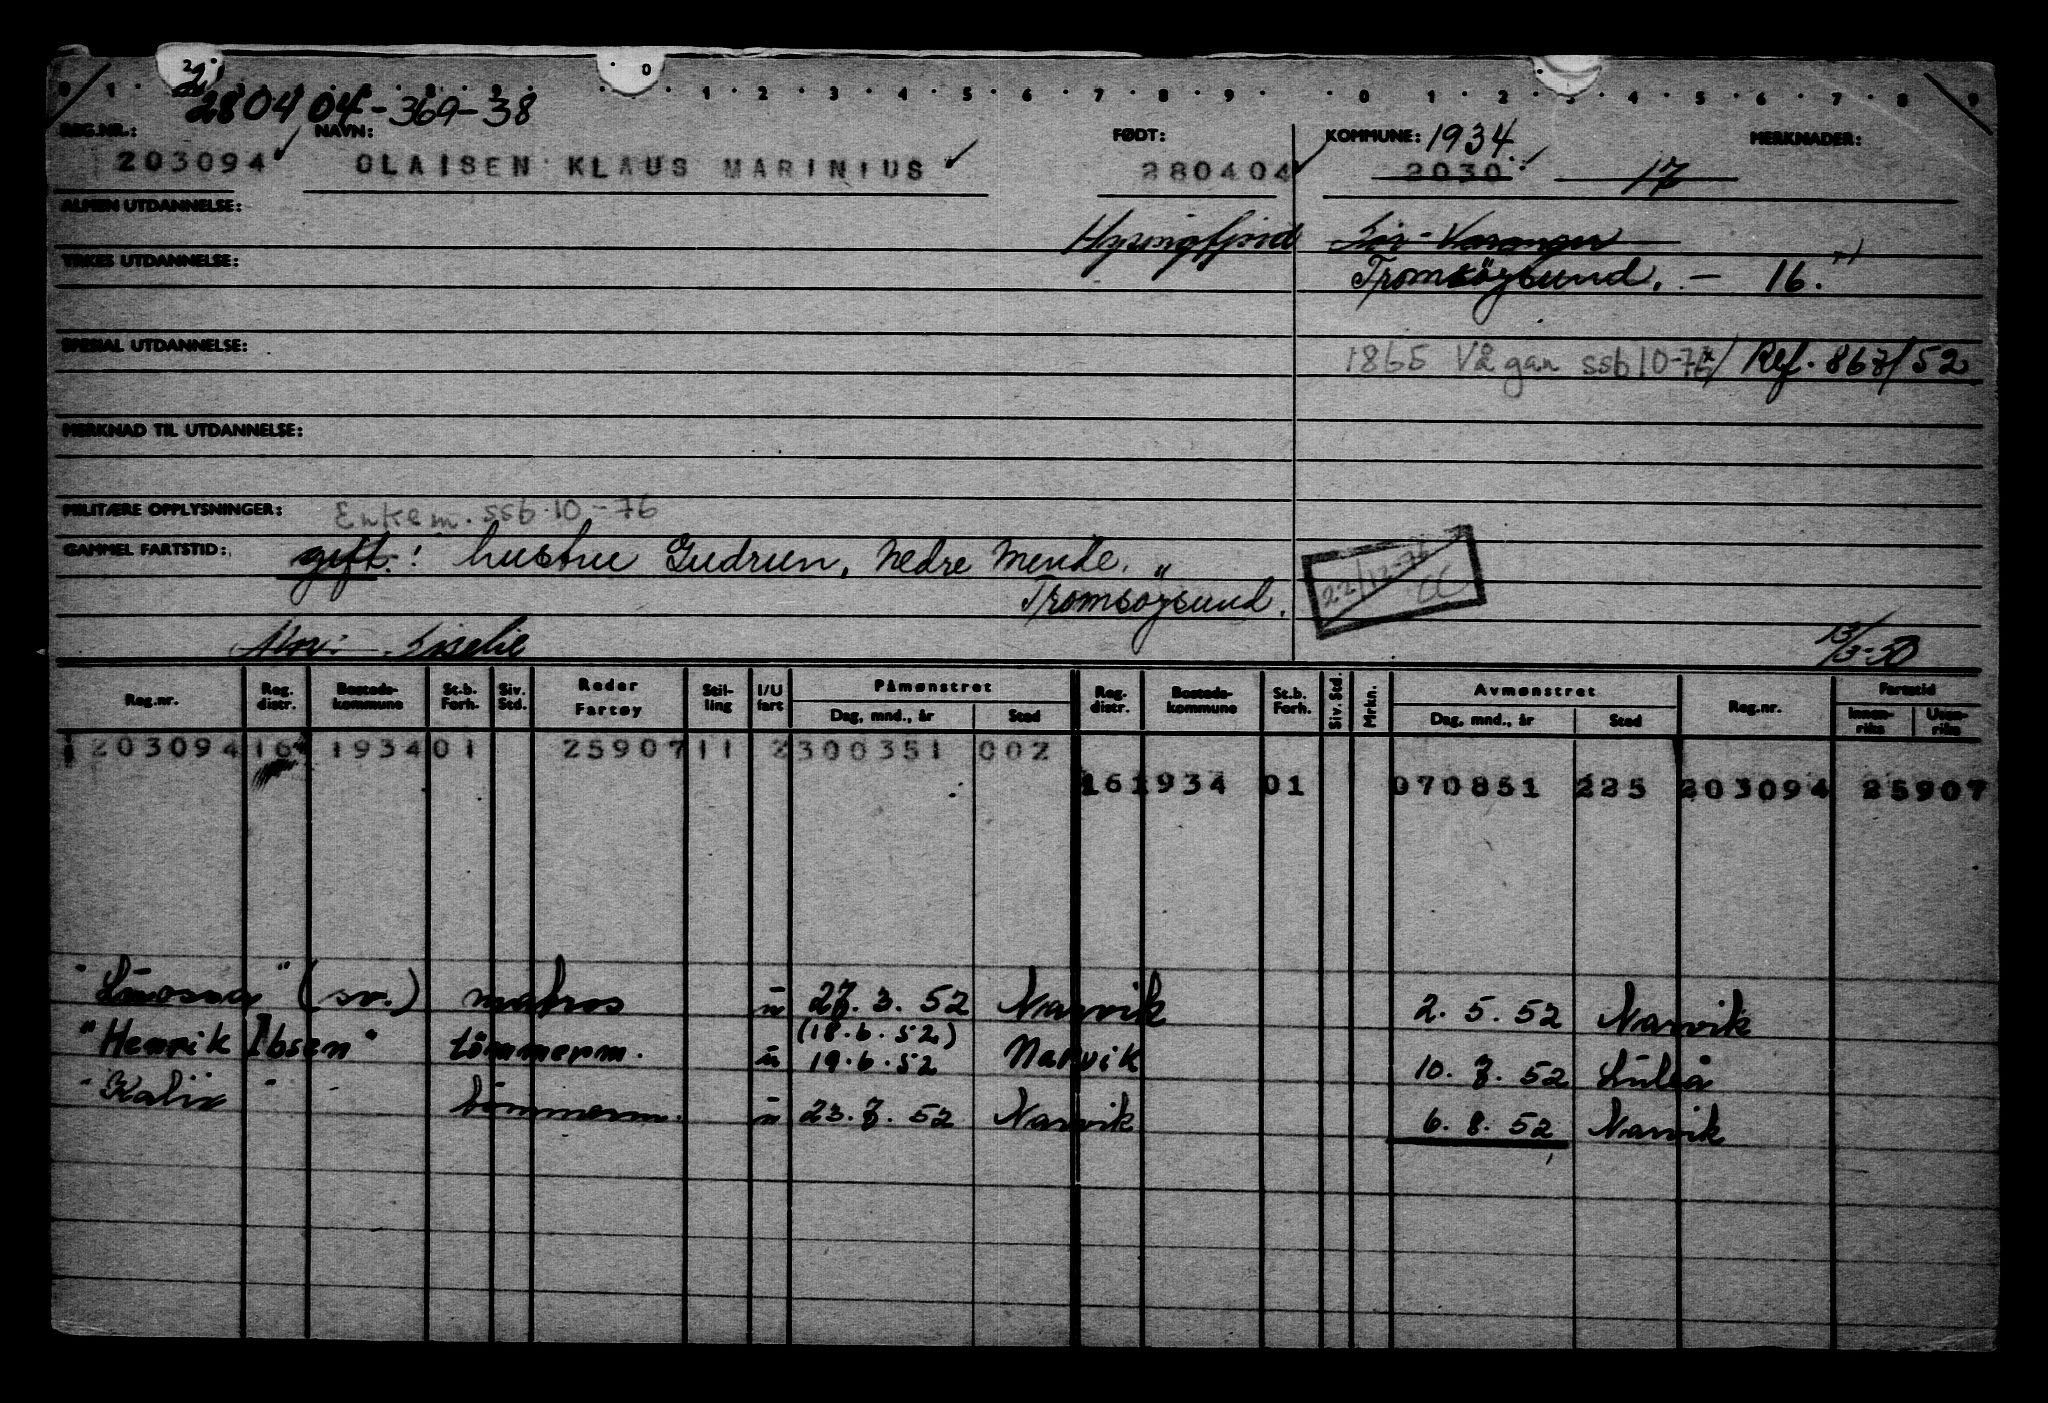 280404-369-38
REG.NR.: NAVN: FØDT: KOMMUNE: 1934 MERKNADER:
203094 OLAISEN KLAUS MARINIUS 280404 2030 17
ALMEN UTDANNELSE:
Sør-Varanger
YRKES UTDANNELSE: Tromsöysund. - 16.
SPESIAL UTDANNELSE: 1865 Vågan ssb 10-76 Ref. 867/52
MERKNAD TIL UTDANNELSE:
MILITÆRE OPPLYSNINGER: Enkem. ssb 10-76
GAMMEL FARTSTID: gift: hustru Gudrun, nedre
Tromsøysund.
22/12-76
Mor:
Reg.nr. Reg. distr. Bosteds-kommune St.b. Forh. Siv. Std. Reder Fartøy Stil-ling I/U fart Påmønstret Dag, mnd., år Sted Reg. distr. Bosteds-kommune St.b. Forh. Siv. Std. Mrkn. Avmønstret Dag, mnd., år Sted Reg.nr. Fartstid Innen-riks Uten-riks
203094 16 1934 01 25907 11 2 300351 002
16 1934 01 070851 225 203094 25907
(sv.) matros u 27. 3. 52 Narvik 2. 5. 52 Narvik
(18.6.52)
"Henrik Ibsen" tömmerm. u 19.6.52 Narvik 10. 7. 52 Luleå
"Kalix" tömmerm. u 23. 7. 52 Narvik 6. 8. 52 Narvik